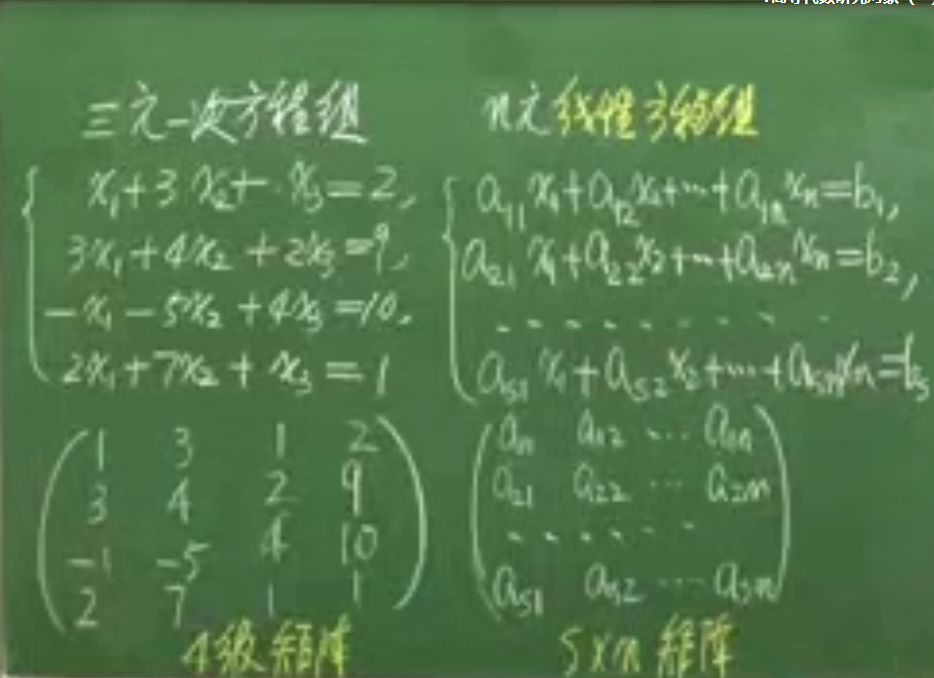 三元一次方程组
x₁+3x₂+x₃=2,
3x₁+4x₂+2x₃=9,
-x₁-5x₂+4x₃=10,
2x₁+7x₂+x₃=1
1 3 1 2
3 4 2 9
-1 -5 4 10
2 7 1 1
4级矩阵
n元线性方程组
a₁₁x₁+a₁₂x₂+…+a₁ₙxₙ=b₁,
a₂₁x₁+a₂₂x₂+…+a₂ₙxₙ=b₂,
. . . . . . . . .
aₛ₁x₁+aₛ₂x₂+…+aₛₙxₙ=bₛ
a₁₁ a₁₂ … a₁ₙ
a₂₁ a₂₂ … a₂ₙ
. . . . . .
aₛ₁ aₛ₂ … aₛₙ
s×n矩阵